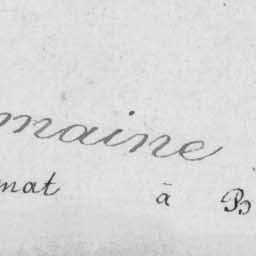 maine
nat à